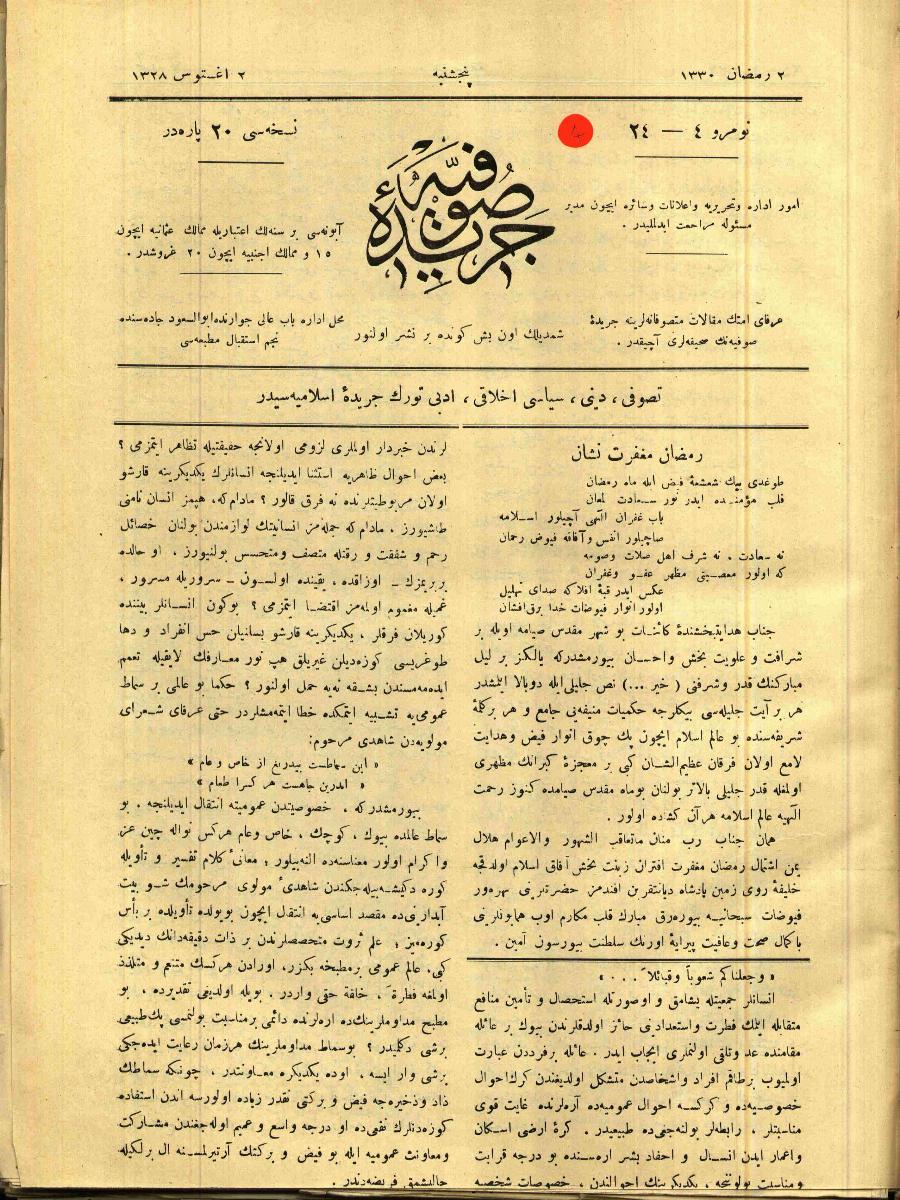 ٢ رمضان ١٣٣٠
پنجشنبه
٢ اغستوس ١٣٢٨
نومرو ٤ — ٢٤
نسخه‌سى ٢٠ پاره‌در
جريدهٔ صوفيه
امور اداره وتحريريه واعلانات وسائره ايچون مدير
مسئوله مراجعت ايدلمليدر .
آبونه‌سى بر سنه‌لك اعتباريله ممالك عثمانيه ايچون
١٥ و ممالك اجنبيه ايچون ٢٠ غروشدر .
عرفاى امتك مقالات متصوفانه‌لرينه جريدهٔ
صوفيه‌نك صحيفه‌لرى آچيقدر .
شمديلك اون بش كونده بر نشر اولنور
محل اداره باب عالى جوارنده ابوالسعود جاده‌سنده
نجم استقبال مطبعه‌سى
تصوفى ، دينى ، سياسى اخلاقى ، ادبى تورك جريدهٔ اسلاميه‌سيدر
رمضان مغفرت نشان
طوغدى بيك شعشعهٔ فيض ايله ماه رمضان
قلب مؤمنده ايدر نور سعادت لمعان
باب غفران الهى آچيلور اسلامه
صاچيلور انفس وآفاقه فيوض رحمان
نه سعادت ، نه شرف اهل صلات وصومه
كه اولور معصيتى مظهر عفو وغفران
عكس ايدر قبهٔ افلاكه صداى تهليل
اولور انوار فيوضات خدا برق‌افشان
جناب هدايتبخشندهٔ كائنات بو شهر مقدس صيامه اويله بر
شرافت و علويت بخش واحسان بيورمشدركه يالكز بر ليل
مباركنك قدر وشرفنى ( خير ...) نص جليلى‌ايله دوبالا ايتمشدر
هر بر آيت جليله‌سى بيكلرجه حكميات منيفه‌يى جامع و هر بركلمهٔ
شريفه‌سنده بو عالم اسلام ايچون پك چوق انوار فيض وهدايت
لامع اولان فرقان عظيم‌الشان كبى بر معجزهٔ كبرانك مظهرى
اولمغله قدر جليلى بالاتر بولنان بوماه مقدس صيامده كنوز رحمت
الهيه عالم اسلامه هرآن كشاده اولور .
همان جناب رب منان متعاقب الشهور والاعوام هلال
يمن اشتمال رمضان مغفرت اقتران زينت بخش آفاق اسلام اولدقجه
خليفهٔ روى زمين پادشاه ديانتقرين افندمز حضرتلرينى بهره‌ور
فيوضات سبحانيه بيوره‌رق مبارك قلب مكارم اوب همايونلرينى
باكمال صحت وعافيت پيرايهٔ اورنك سلطنت بيورسون آمين .
« وجعلناكم شعوباً وقبائلاً . . . »
انسانلر جمعيتله يشامق و اوصورتله استحصال و تأمين منافع
متقابله ايتمك فطرت واستعدادنى حائز اولدقلرندن بيوك بر عائله
مقامنده عد وتلقى اولنملرى ايجاب ايدر . عائله برفرددن عبارت
اولميوب برطاقم افراد واشخاصدن متشكل اولديغندن كرك احوال
خصوصيه‌ده و كركسه احوال عموميه‌ده آره‌لرنده غايت قوى
مناسبتلر ، رابطه‌لر بولنه‌جغى‌ده طبيعيدر . كرهٔ ارضى اسكان
واعمار ايدن انسال و احفاد بشر اره‌سنده بو درجه قرابت
ومناسبت بولنجه ، يكديكرينك احوالندن ، خصوصات شخصيه
لرندن خبردار اولملرى لزومى اولانجه حقيقتيله تظاهر ايتمزمى ؟
بعض احوال ظاهريه استثنا ايديلنجه انسانلرك يكديكرينه قارشو
اولان مربوطيتنده نه فرق قالور ؟ مادام‌كه، هپمز انسان نامنى
طاشيورز ، مادام كه جمله‌مز انسانيتك لوازمندن بولنان خصائل
رحم و شفقت و رقتله متصف ومتحسس بولنيورز ، او حالده
بربريمزك ـ اوزاقده ، يقينده اولسون ـ سروريله مسرور ،
غميله مغموم اولمه‌مز اقتضا ايتمزمى ؟ بوكون انسانلر بيننده
كوريلان فرقلر ، يكديكرينه قارشو بسانيان حس انفراد و دها
طوغريسى كوزه‌ديلن غيريلق هپ نور معارفك لايقيله تعمم
ايده‌مه‌مسندن بشقه نه‌يه حمل اولنور ؟ حكما بو عالمى بر سماط
عمومى‌يه تشبيه ايتمكده خطا ايتمه‌مشلردر حتى عرفاى شعراى
مولويه‌دن شاهدى مرحوم:
« اين سماطست بيدريغ از خاص و عام »
« اندرين جاهست هر كسرا طعام »
بيورمشدركه ، خصوصيتدن عموميته انتقال ايديلنجه . بو
سماط عالمده بيوك ، كوچك ، خاص وعام هركس نواله چين عز
واكرام اولور معناسنده النه‌بيلور ؛ معانئ كلام تفسير و تأويله
كوره دكيشه‌بيله‌جكندن شاهدئ مولوى مرحومك شو بيت
آبدارينى‌ده مقصد اساسى‌يه انتقال ايچون بويولده تأويلده بر بأس
كورمه‌يز ؛ علم ثروت متخصصلرندن بر ذات دقيقه‌دانك ديديكى
كبى، عالم عمومى برمطبخه بكزر، اورادن هركسك متنعم و متلذذ
اولمغه فطرةً ، خلقة حقى واردر . بويله اولديغى تقديرده ، بو
مطبخ مداوملرينك‌ده اره‌لرنده دائمى برمناسبت بولنمسى پك‌طبيعى
برشى دكليدر ؟ بوسماط مداوملرينك هرزمان رعايت ايده‌جكى
برشى وار ايسه ، اوده يكديكره معاونتدر ، چونكه سماطك
ذاد وذخيره‌جه فيض و بركتى نقدر زياده اولورسه اندن استفاده
كوزه‌دنلرك نفعى‌ده او درجه واسع و عميم اوله‌جغندن مشاركت
ومعاونت عموميه ايله بو فيض و بركتك آرتيرلمسنه ال برلكيله
چاليشمق فريضه‌دندر .